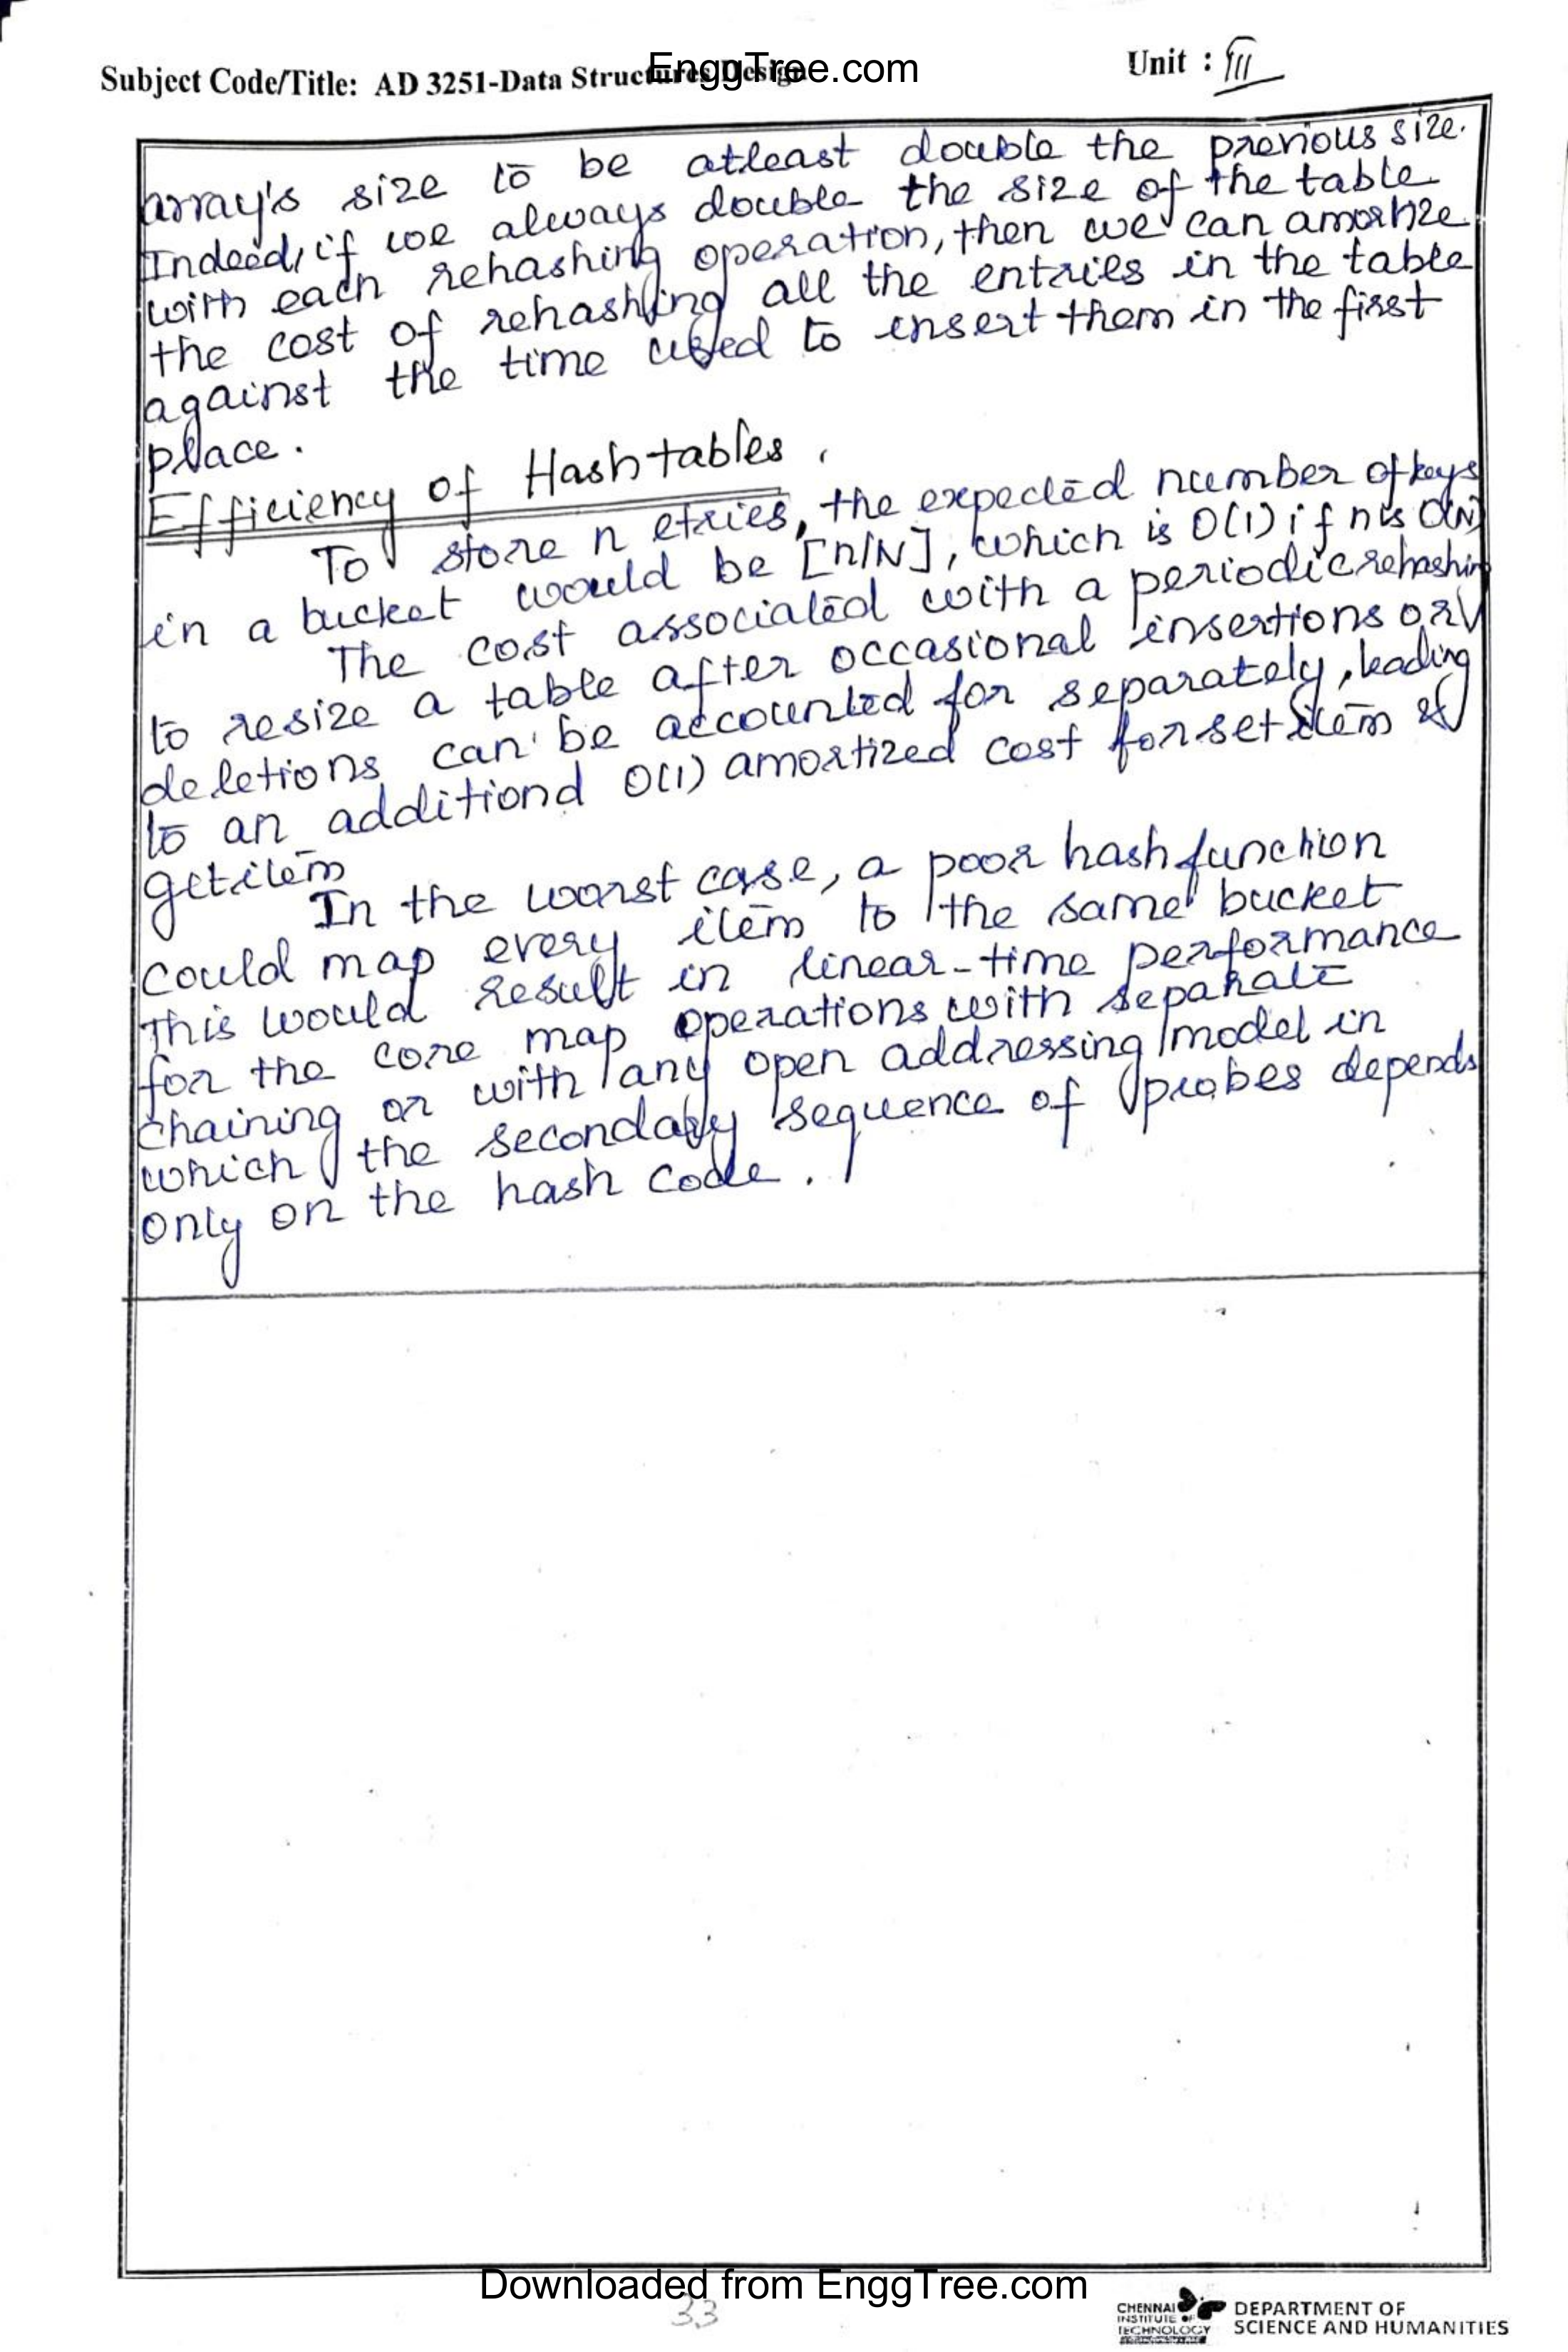 EnggTree.com
Subject Code/Title: AD 3251-Data Structures Design
Unit : III
array's size to be atleast double the previous size.
Indeed, if we always double the size of the table
with each rehashing operation, then we can amortize
the cost of rehashing all the entries in the table
against the time used to insert them in the first
place.
Efficiency of Hash tables.
To store n etries, the expected number of keys
in a bucket would be [n/N], which is O(1) if n is O(N)
The cost associated with a periodic rehashin
to resize a table after occasional insertions or
deletions can be accounted for separately, leading
to an additiond O(1) amortized cost for setitem &
getitem
In the worst case, a poor hash function
could map every item to the same bucket
This would result in linear-time performance
for the core map operations with separate
chaining or with any open addressing model in
which the secondary sequence of probes depends
only on the hash code.
Downloaded from EnggTree.com
33
CHENNAI
INSTITUTE OF
TECHNOLOGY
DEPARTMENT OF
SCIENCE AND HUMANITIES